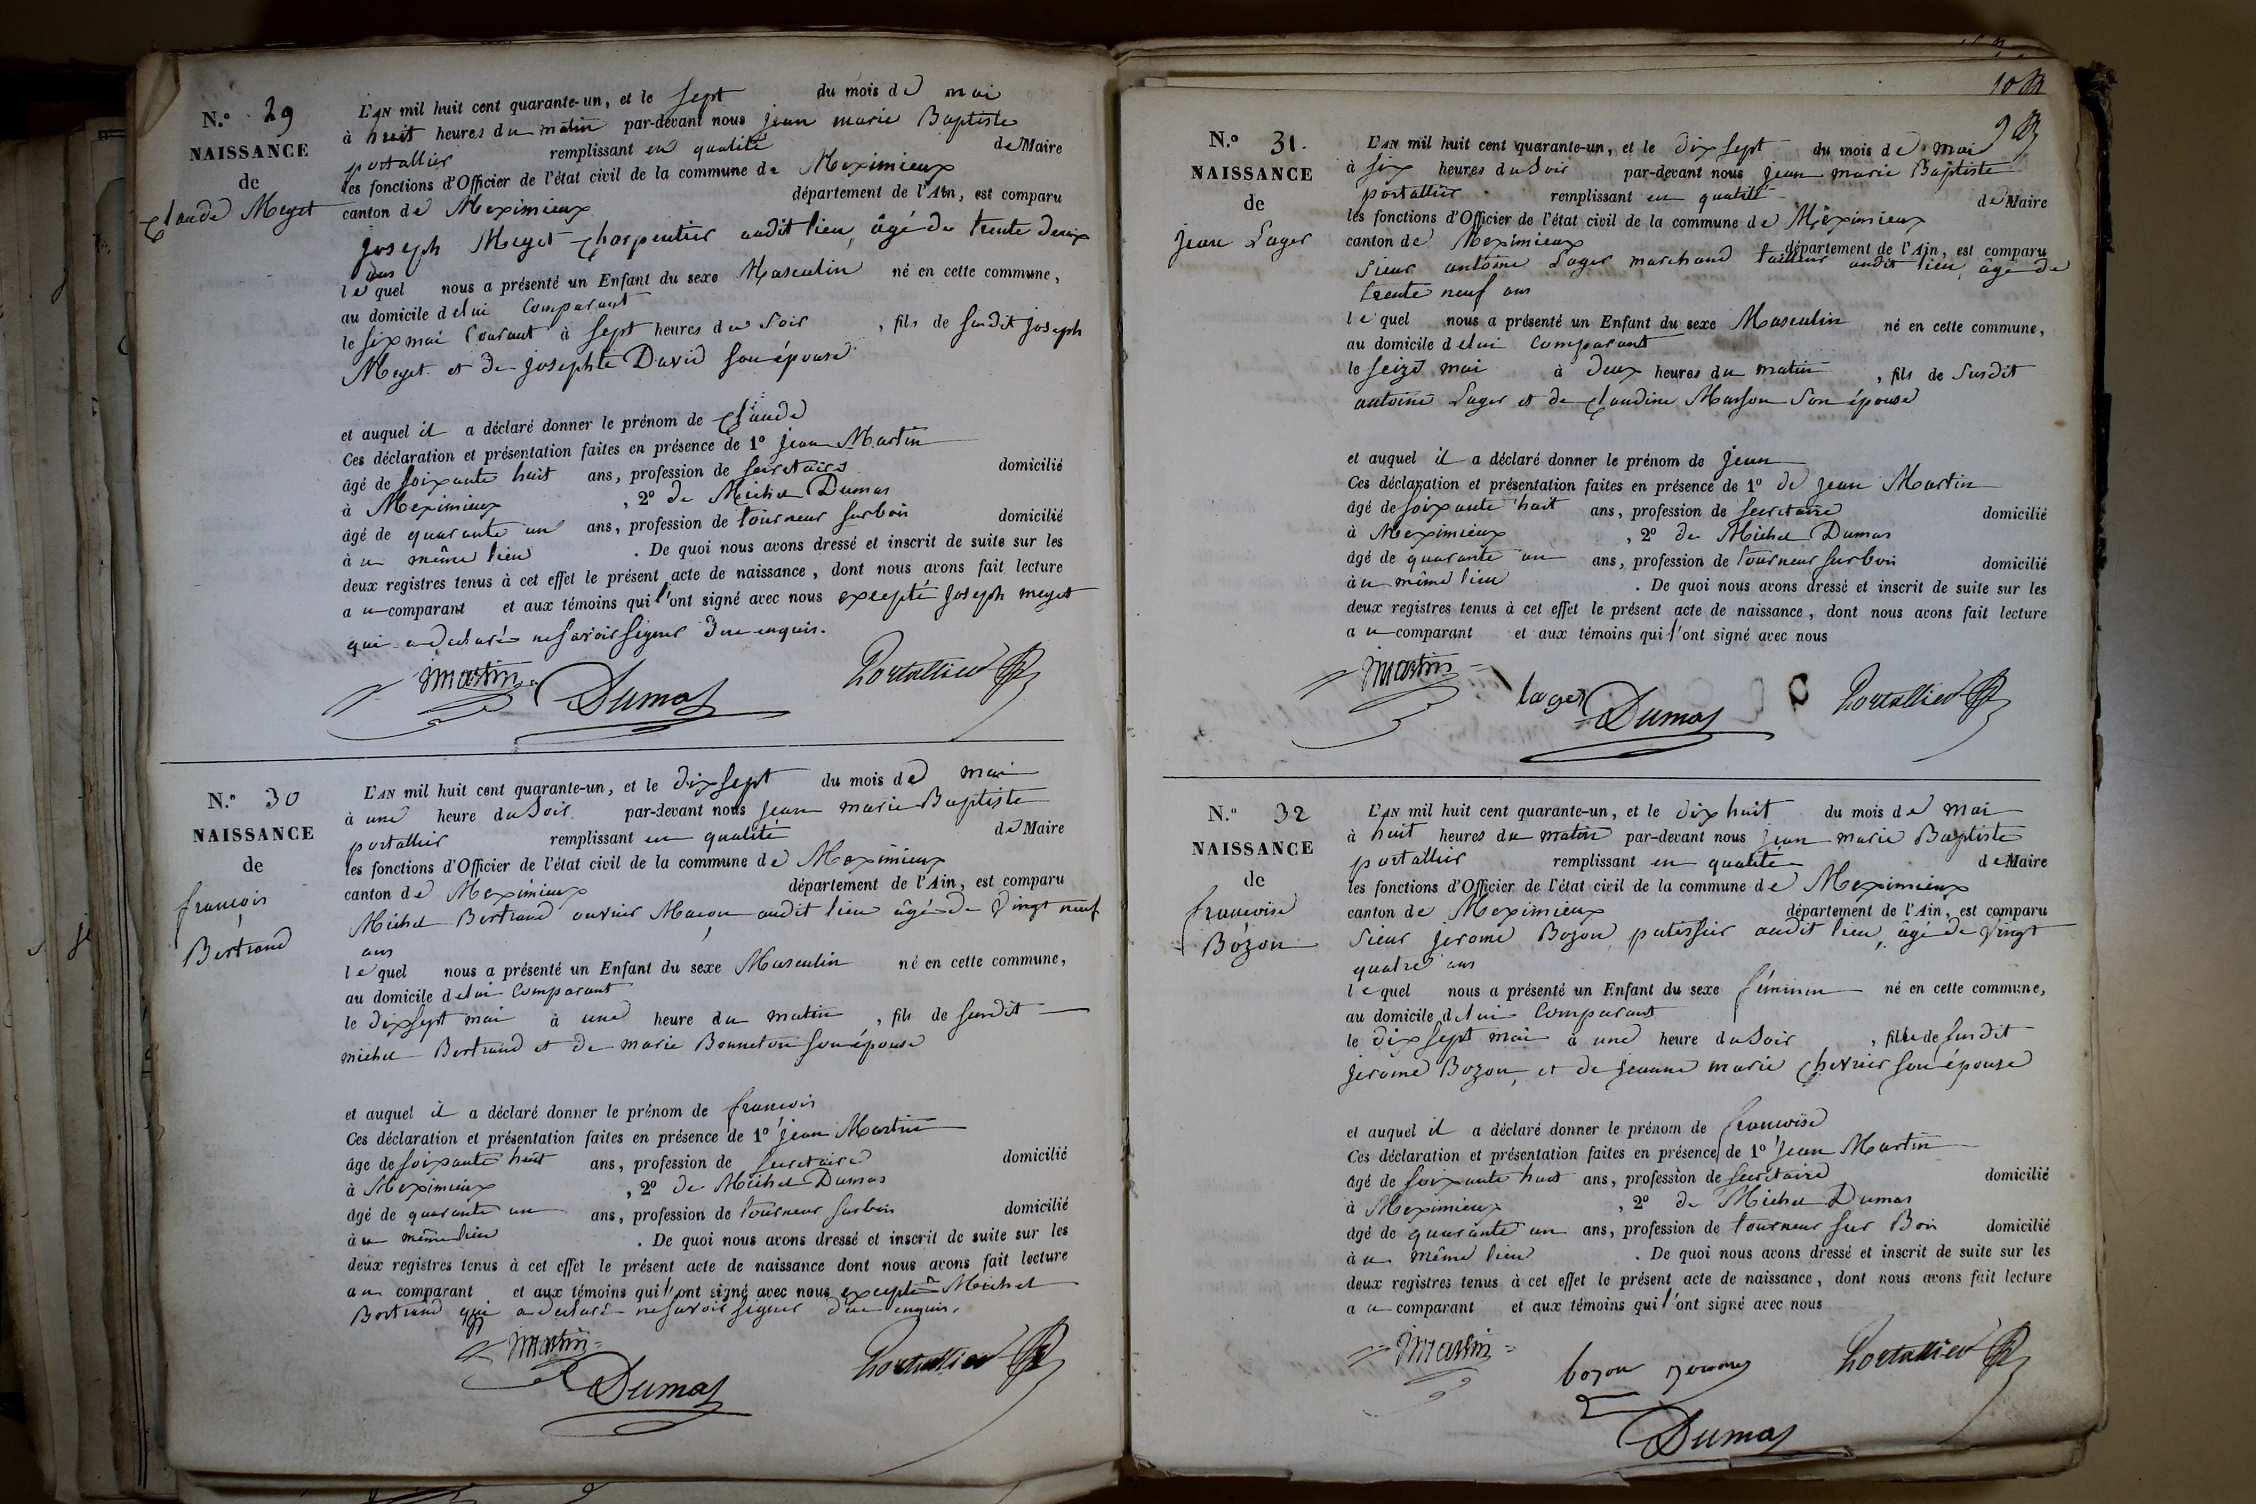 N.° 29
NAISSANCE
de
Claude Meget
L'AN mil huit cent quarante-un, et le sept du mois de mai
à huit heures du matin par-devant nous jean marie Baptiste
portallier remplissant en qualité de Maire
les fonctions d'Officier de l'état civil de la commune de Meximieux
canton de Meximieux département de l'Ain, est comparu
joseph Meget charpentier audit lieu, âgé de trente deux
ans
lequel nous a présenté un Enfant du sexe Masculin né en cette commune,
au domicile de lui Comparant
le six mai Courant à sept heures du soir, fils de susdit joseph
Meget et de josephte David son épouse
et auquel il a déclaré donner le prénom de Claude
Ces déclaration et présentation faites en présence de 1° jean Martin
âgé de soixante huit ans, profession de secretaire domicilié
à Meximieux, 2° de Michel Dumas
âgé de quarante un ans, profession de tourneur sur bois domicilié
au même lieu. De quoi nous avons dressé et inscrit de suite sur les
deux registres tenus à cet effet le présent acte de naissance, dont nous avons fait lecture
au comparant et aux témoins qui l'ont signé avec nous excepté joseph meget
qui a declaré ne savoir signer Due enquis.
Martin Dumas Portallier
N.° 30
NAISSANCE
de
francois
Bertrand
L'AN mil huit cent quarante-un, et le dix sept du mois de mai
à une heure du soir par-devant nous jean marie Baptiste
portallier remplissant en qualité de Maire
les fonctions d'Officier de l'état civil de la commune de Meximieux
canton de Meximieux département de l'Ain, est comparu
Michel Bertrand ouvrier Maçon audit lieu âgé de vingt neuf
ans
lequel nous a présenté un Enfant du sexe Masculin né en cette commune,
au domicile de lui Comparant
le dix sept mai à une heure du matin, fils de susdit
michel Bertrand et de marie Bonneton son épouse
et auquel il a déclaré donner le prénom de francois
Ces déclaration et présentation faites en présence de 1° jean Martin
âge de soixante huit ans, profession de secretaire domicilié
à Meximieux, 2° de Michel Dumas
âgé de quarante un ans, profession de tourneur sur bois domicilié
au même lieu. De quoi nous avons dressé et inscrit de suite sur les
deux registres tenus à cet effet le présent acte de naissance dont nous avons fait lecture
au comparant et aux témoins qui l'ont signé avec nous excepté Michel
Bertrand qui a declaré ne savoir signer Due enquis.
Martin Portallier
Dumas
108
9
N.° 31.
NAISSANCE
de
jean Lager
L'AN mil huit cent quarante-un, et le dix sept du mois de mai
à six heures du soir par-devant nous jean marie Baptiste
portallier remplissant en qualité de Maire
les fonctions d'Officier de l'état civil de la commune de Meximieux
canton de Meximieux département de l'Ain, est comparu
sieur antoine Lager marchand tailleur audit lieu, âgé de
trente neuf ans
lequel nous a présenté un Enfant du sexe Masculin né en cette commune,
au domicile de lui Comparant
le seize mai à deux heures du matin, fils de susdit
antoine Lager et de Claudine Masson son épouse
et auquel il a déclaré donner le prénom de jean
Ces déclaration et présentation faites en présence de 1° de jean Martin
âgé de soixante huit ans, profession de secretaire domicilié
à Meximieux, 2° de Michel Dumas
âgé de quarante un ans, profession de tourneur sur bois domicilié
au même lieu. De quoi nous avons dressé et inscrit de suite sur les
deux registres tenus à cet effet le présent acte de naissance, dont nous avons fait lecture
au comparant et aux témoins qui l'ont signé avec nous
Martin lager Dumas Portallier
N.° 32
NAISSANCE
de
francoise
Bozon
L'AN mil huit cent quarante-un, et le dix huit du mois de mai
à huit heures du matin par-devant nous jean marie Baptiste
portallier remplissant en qualité de Maire
les fonctions d'Officier de l'état civil de la commune de Meximieux
canton de Meximieux département de l'Ain, est comparu
sieur jerome Bozon, patissier audit lieu, âgé de vingt
quatre ans
lequel nous a présenté un Enfant du sexe féminin né en cette commune,
au domicile de lui Comparant
le dix sept mai à une heure du soir, fille de susdit
jerome Bozon, et de jeanne marie Chevrier son épouse
et auquel il a déclaré donner le prénom de francoise
Ces déclaration et présentation faites en présence de 1° jean Martin
âgé de soixante huit ans, profession de secretaire domicilié
à Meximieux, 2° de Michel Dumas
âgé de quarante un ans, profession de tourneur sur Bois domicilié
au même lieu. De quoi nous avons dressé et inscrit de suite sur les
deux registres tenus à cet effet le présent acte de naissance, dont nous avons fait lecture
au comparant et aux témoins qui l'ont signé avec nous
Martin bozon Portallier
Dumas